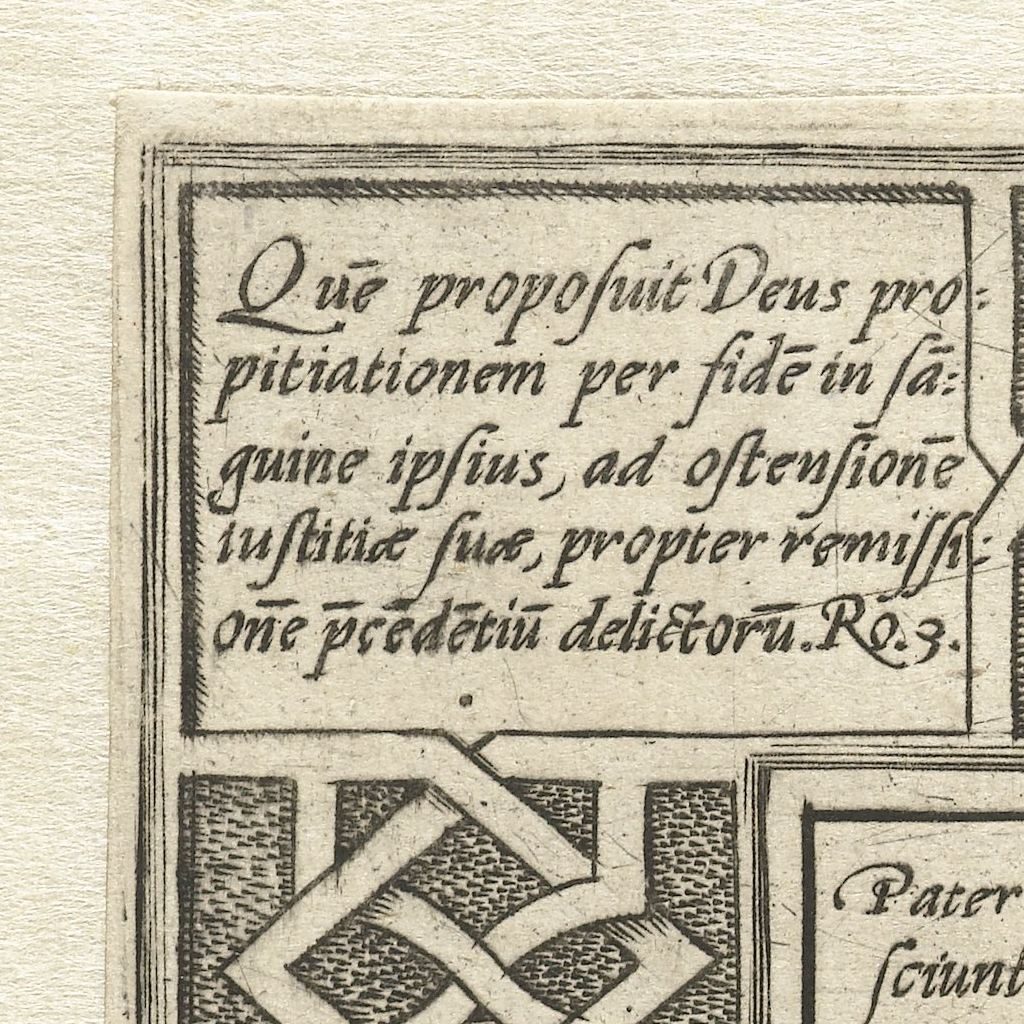 Quē propoſuit Deus pro:
pitiationem per fidē in ſā:
guine ipſius, ad oſtenſionē
iuſtitiæ ſuæ, propter remiſſi:
onē p̄cēdētiū delictorū. Ro. 3.
Pater
ſciunt